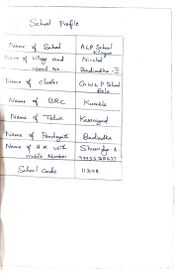 School Profile
Name of School ALP School
Name of Village and Nirchal
Ward No Badiadka
Name of Cluster GWLP School
Bela
Name of BRC Kumbla
Name of Taluk Kasaragod
Name of Panchayat Badiadka
Name of with
mobile Number
School Code 11308